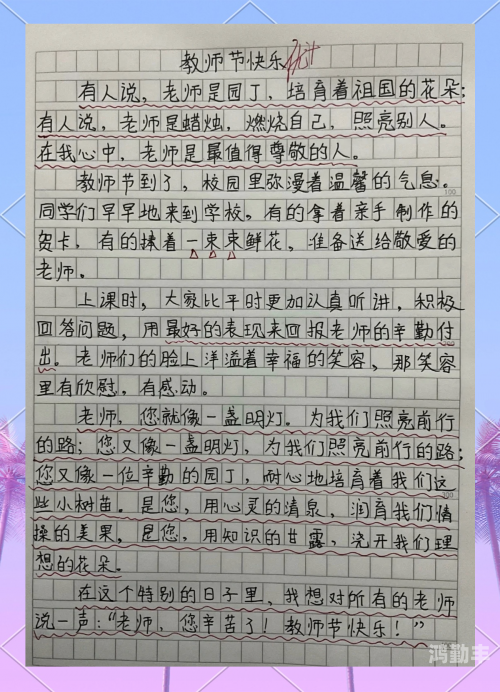 教师节快乐
有人说，老师是园丁，培育着祖国的花朵；
有人说，老师是蜡烛，燃烧自己，照亮别人。
在我心中，老师是最值得尊敬的人。
教师节到了，校园里弥漫着温馨的气息。
100
同学们早早地来到学校，有的拿着亲手制作的
贺卡，有的捧着一束束鲜花，准备送给敬爱的
老师。
上课时，大家比平时更加认真听讲，积极
回答问题，用最好的表现来回报老师的辛勤付
出。老师们的脸上洋溢着幸福的笑容，那笑容
里有欣慰，有感动。
老师，您就像一盏明灯。为我们照亮前行
的路；您又像一盏明灯，为我们照亮前行的路；
您又像一位辛勤的园丁，耐心地培育着我们这
些小树苗。是您，用心灵的清泉，润育我们情
操的美果，是您，用知识的甘露，浇开我们理
想的花朵。
在这个特别的日子里，我想对所有的老师
说一声：“老师，您辛苦了！教师节快乐！”
鸿勤丰